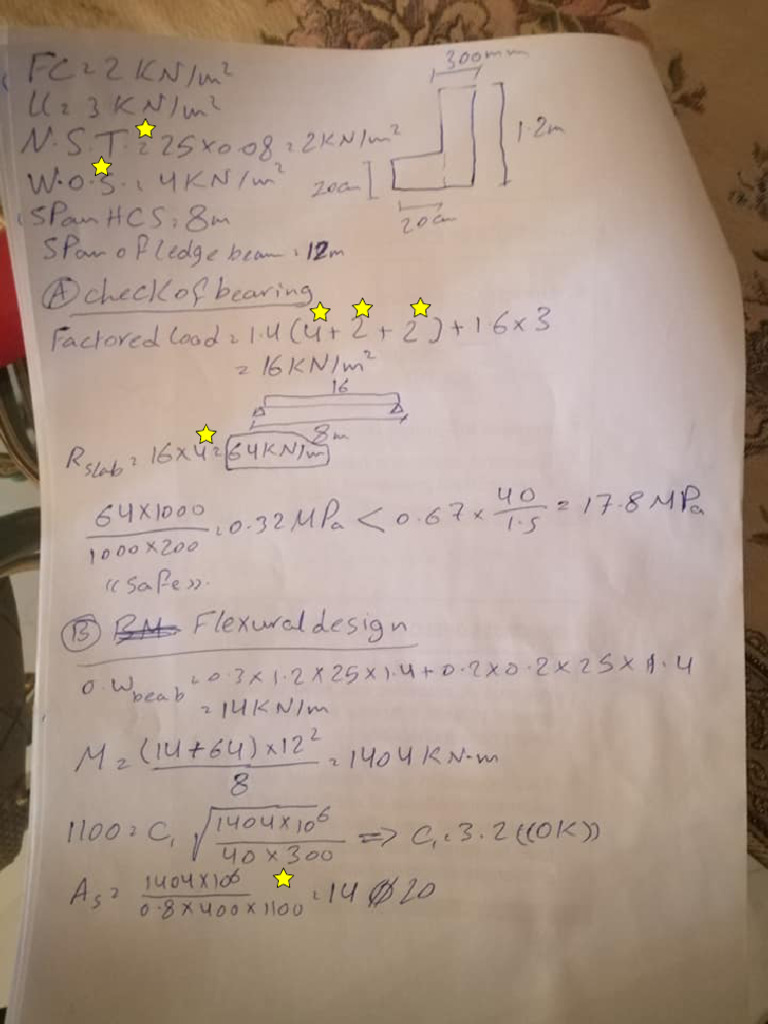 FC = 2 KN/m²
LL = 3 KN/m²
N.S.T. = 25×0.08 = 2KN/m²
W.O.S. = 4KN/m²
Span HCS = 8m
Span of ledge beam = 12m
300mm
1.2m
20cm
20cm
(A) check of bearing
Factored load = 1.4 (4+2+2) + 1.6×3
= 16KN/m²
16
8m
R slab = 16×4 = 64KN/m
64×1000 / 1000×200 = 0.32MPa < 0.67× 40/1.5 = 17.8MPa
<<Safe>>.
(B) Flexural design
o.w beab = 0.3×1.2×25×1.4+0.2×0.2×25×1.4
= 14KN/m
M = (14+64)×12² / 8 = 1404KN.m
1100 = C₁ √(1404×10⁶ / 40×300) => C₁ = 3.2 ((OK))
As = 1404×10⁶ / 0.8×400×1100 = 14 Ø 20